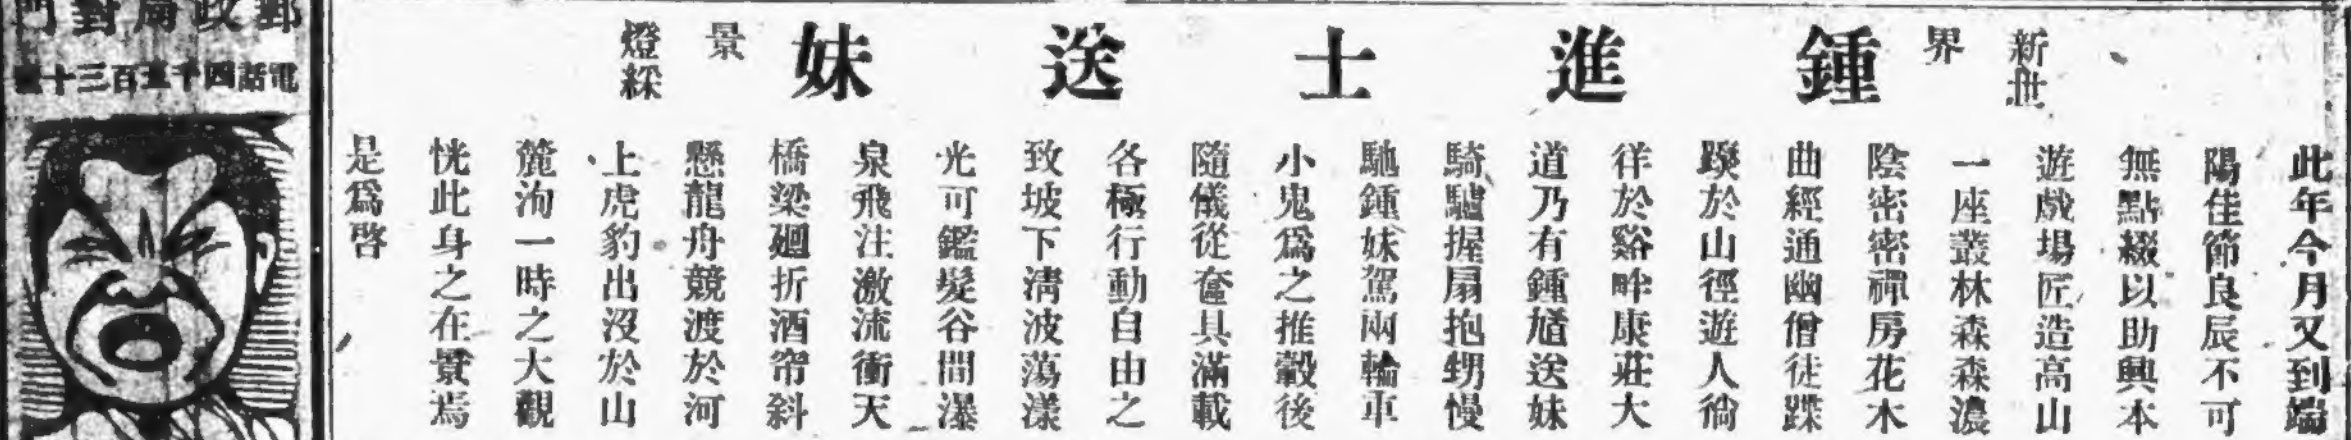 新世界
鍾進士送妹
燈綵景
此年今月又到端
陽佳節良辰不可
無點綴以助興本
遊戲場匠造高山
一座叢林森森濃
陰密密禪房花木
曲經通幽僧徒蹀
躞於山徑遊人徜
徉於谿畔康莊大
道乃有鍾馗送妹
騎驢握扇抱甥慢
馳鍾妹駕兩輪車
小鬼爲之推轂後
隨儀從奩具滿載
各極行動自由之
致坡下淸波蕩漾
光可鑑髮谷間瀑
泉飛注激流衝天
橋梁廻折酒帘斜
懸龍舟競渡於河
上虎豹出沒於山
麓洵一時之大觀
恍此身之在景焉
是爲啓
郵政局對門
電話四千五百三十